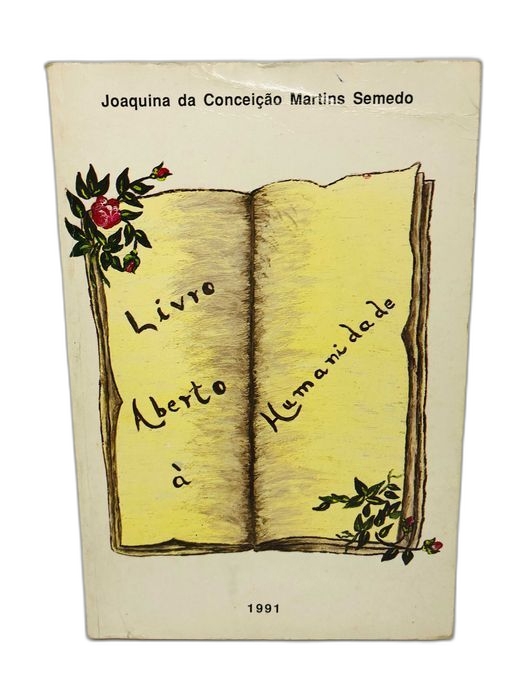 Joaquina da Conceição Martins Semedo
Livro
Aberto
à
Humanidade
1991